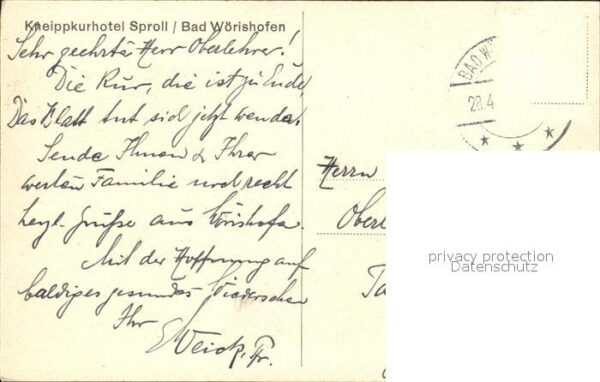 Kneippkurhotel Sproll / Bad Wörishofen
Sehr geehrter Herr Oberlehrer!
Die Kur, die ist zu Ende
Das Blatt tut sich jetzt wenden.
Sende Ihnen & Ihrer
werten Familie noch recht
herzl. Grüße aus Wörishofen.
Mit der Hoffnung auf
baldiges gesundes Wiedersehen
Ihr
BAD W
28.4
Herrn
Oberl
Ta
privacy protection
Datenschutz